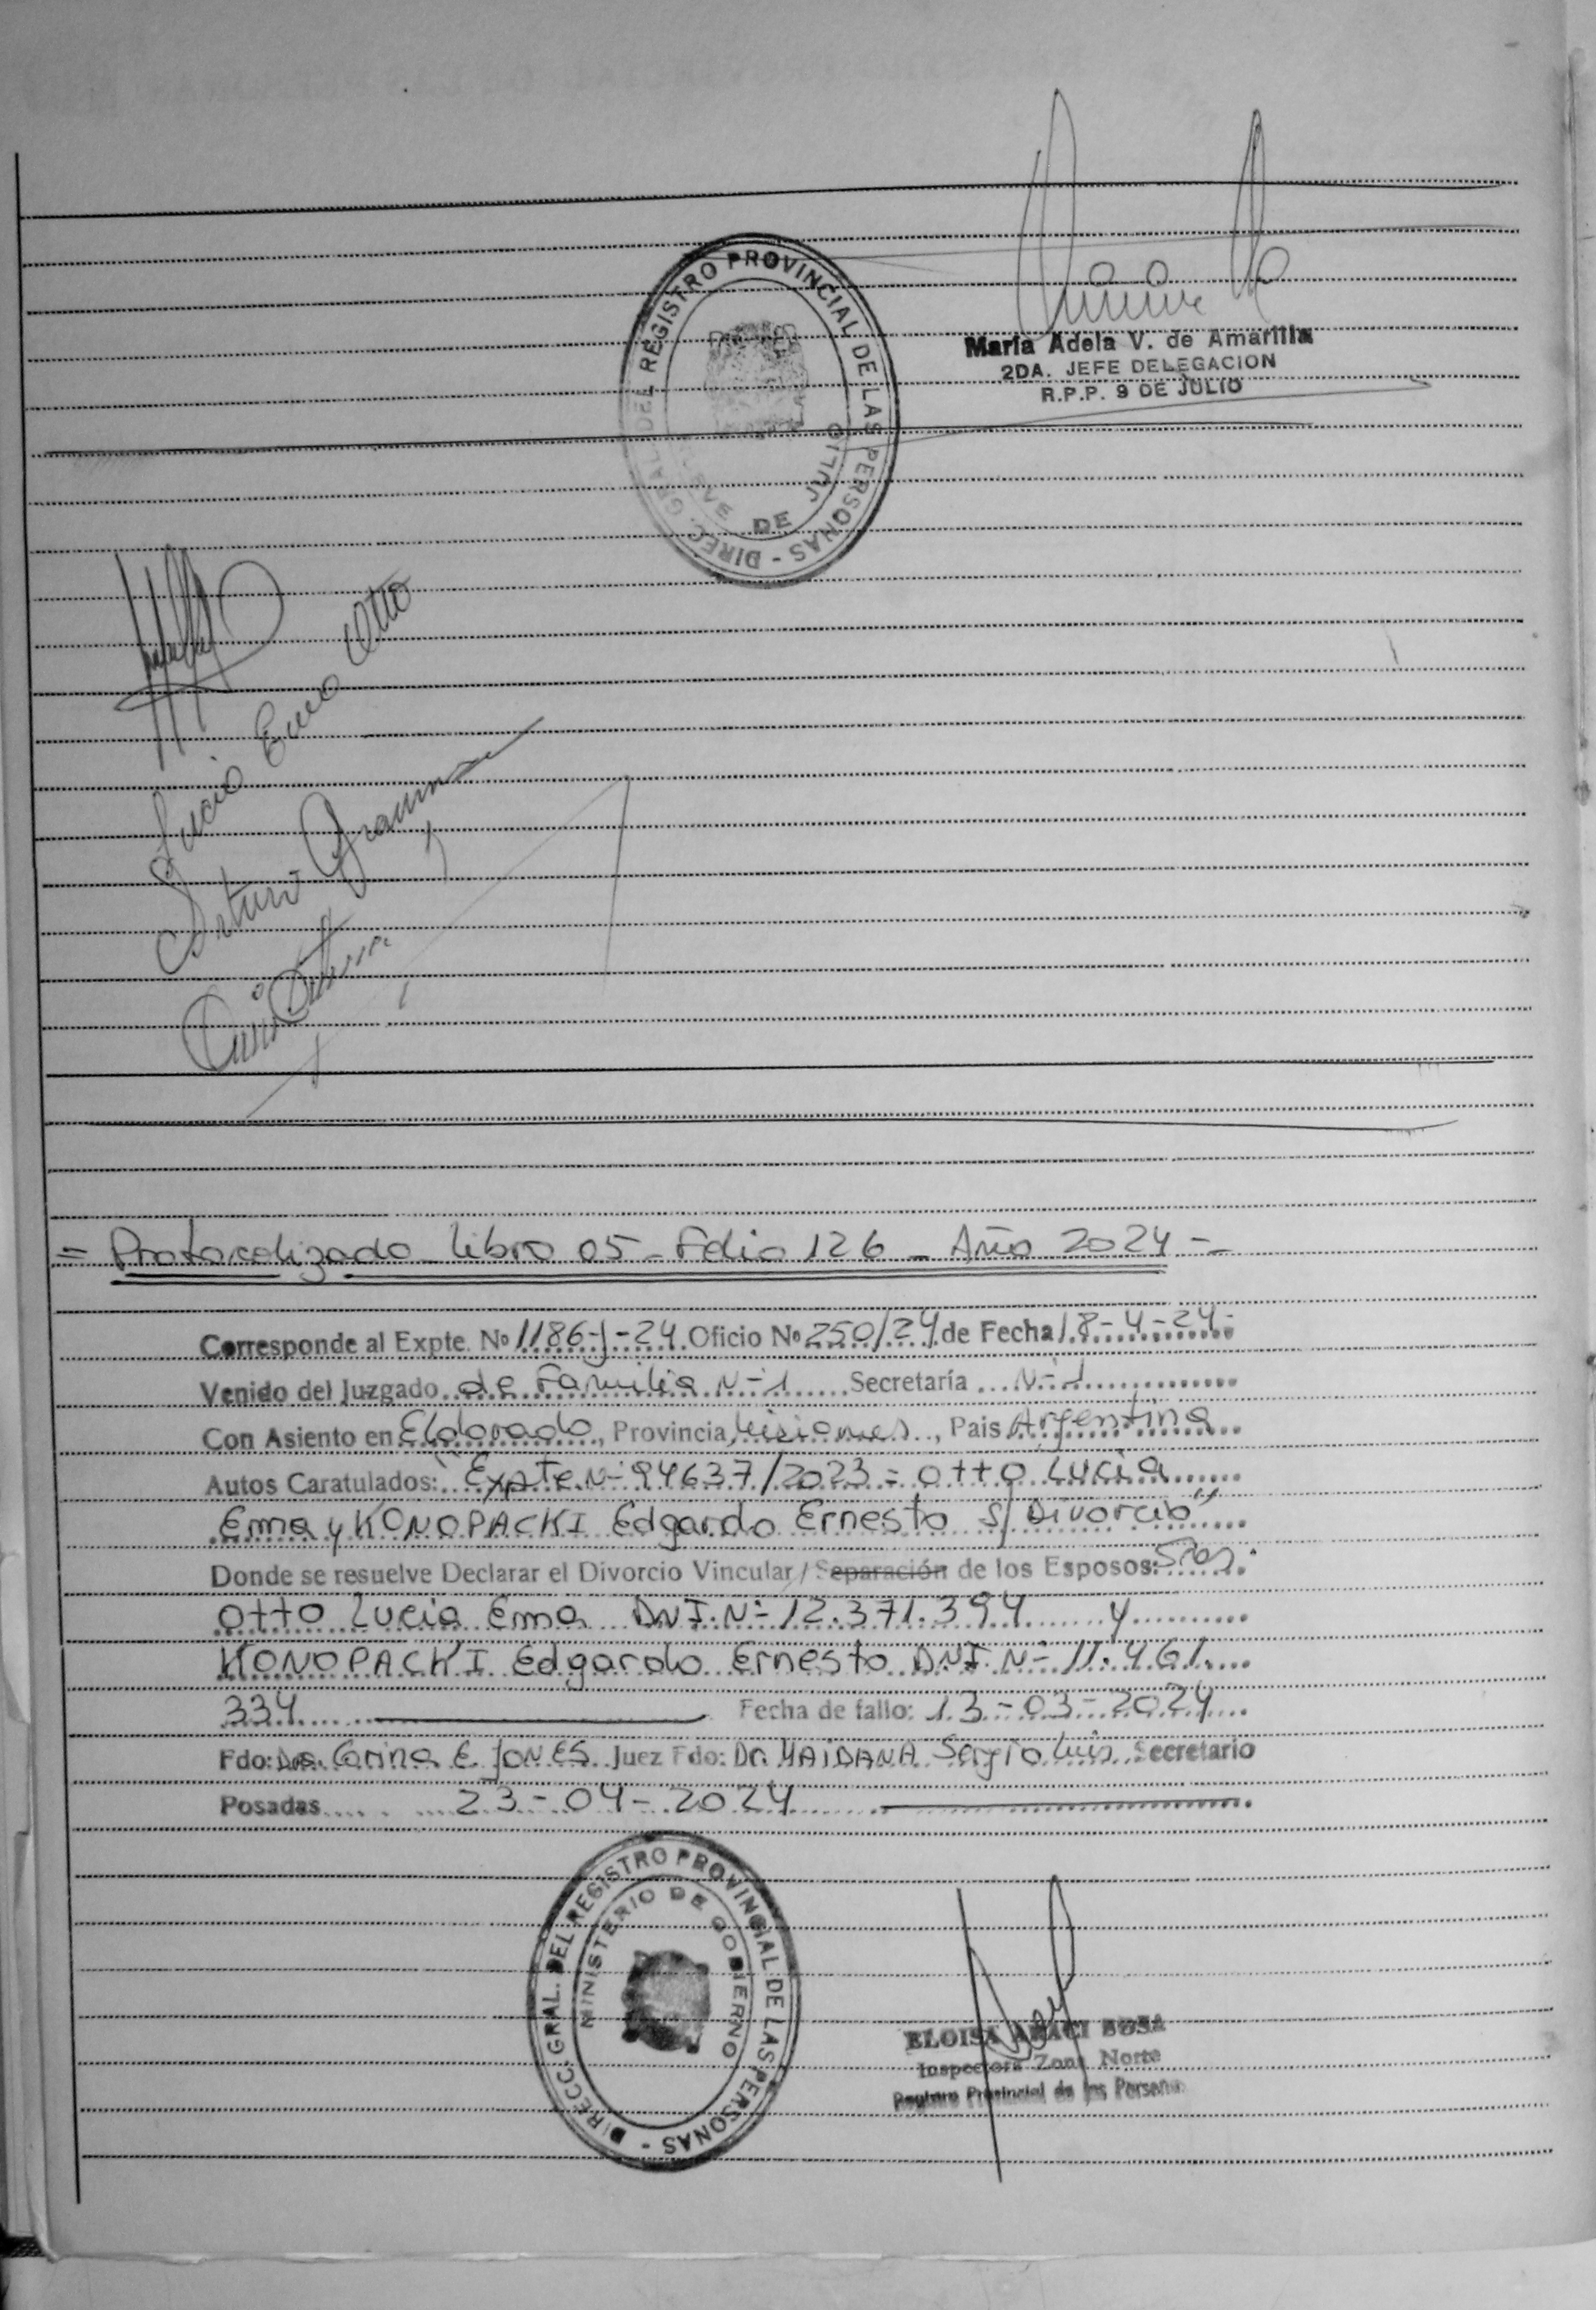 DIREC. GRAL DEL REGISTRO PROVINCIAL DE LAS PERSONAS -
NUEVE DE JULIO
María Adela V. de Amarilla
2DA. JEFE DELEGACION
R.P.P. 9 DE JULIO
Lucia Ema Otto
Arturo
= Protocolizado Libro 05 - Folio 126 - Año 2024 -
Corresponde al Expte. Nº 1186-J-24 Oficio Nº 250/24 de Fecha 18-4-24-
Venido del Juzgado de Familia N-1 Secretaría N-1
Con Asiento en Eldorado, Provincia Misiones, Pais Argentina
Autos Caratulados: "Expte N- 94637/2023 = Otto Lucia
Ema y KONOPACKI Edgardo Ernesto S/ Divorcio"
Donde se resuelve Declarar el Divorcio Vincular / Separación de los Esposos: Sres.
Otto Lucia Ema DNI. N- 12.371.394 y
KONOPACKI Edgardo Ernesto DNI. N- 11.461.
334 Fecha de fallo: 13-03-2024
Fdo: Dra. Carina E. JONES Juez Fdo: Dr. MAIDANA Sergio Luis Secretario
Posadas 23-04-2024
DIRECC. GRAL. DEL REGISTRO PROVINCIAL DE LAS PERSONAS -
MINISTERIO DE GOBIERNO
ELOISA ARACI SOSA
Inspectora Zona Norte
Registro Provincial de las Personas